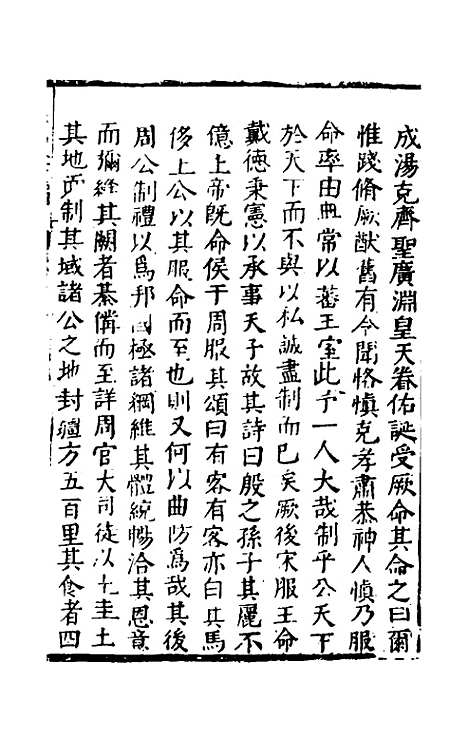 成湯克齊聖廣淵皇天眷佑誕受厥命其命之曰爾
惟踐脩厥猷舊有令聞恪慎克孝肅恭神人慎乃服
命率由典常以蕃王室此乎一人大哉制乎公天下
於天下而不與以私誠盡制而已矣厥後宋服王命
戴德秉憲以承事天子故其詩曰殷之孫子其麗不
億上帝既命侯于周服其頌曰有客有客亦白其馬
侈上公以其服命而至也則又何以曲防爲哉其後
周公制禮以爲邦國極諸綱維其體統暢洽其恩意
而彌縫其闕者綦備而至詳周官大司徒以土圭土
其地而制其域諸公之地封疆方五百里其食者四